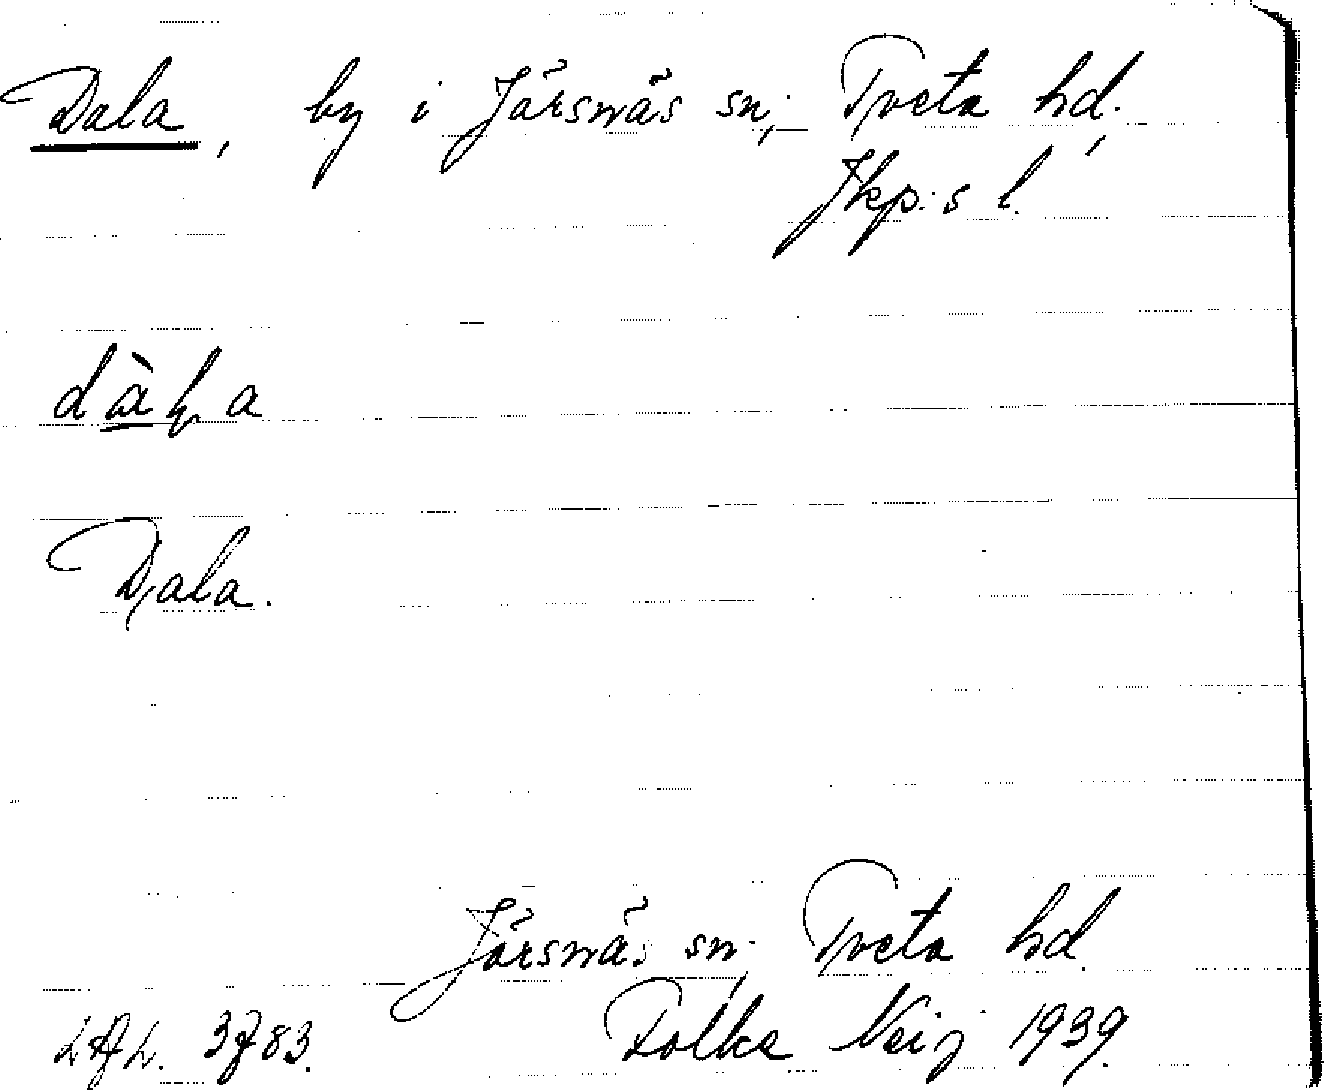 Dala, by i Järsnäs sn, Tveta hd,
Jkp:s l.
dàla
Dala.
Järsnäs sn, Tveta hd.
Folke Neij 1939.